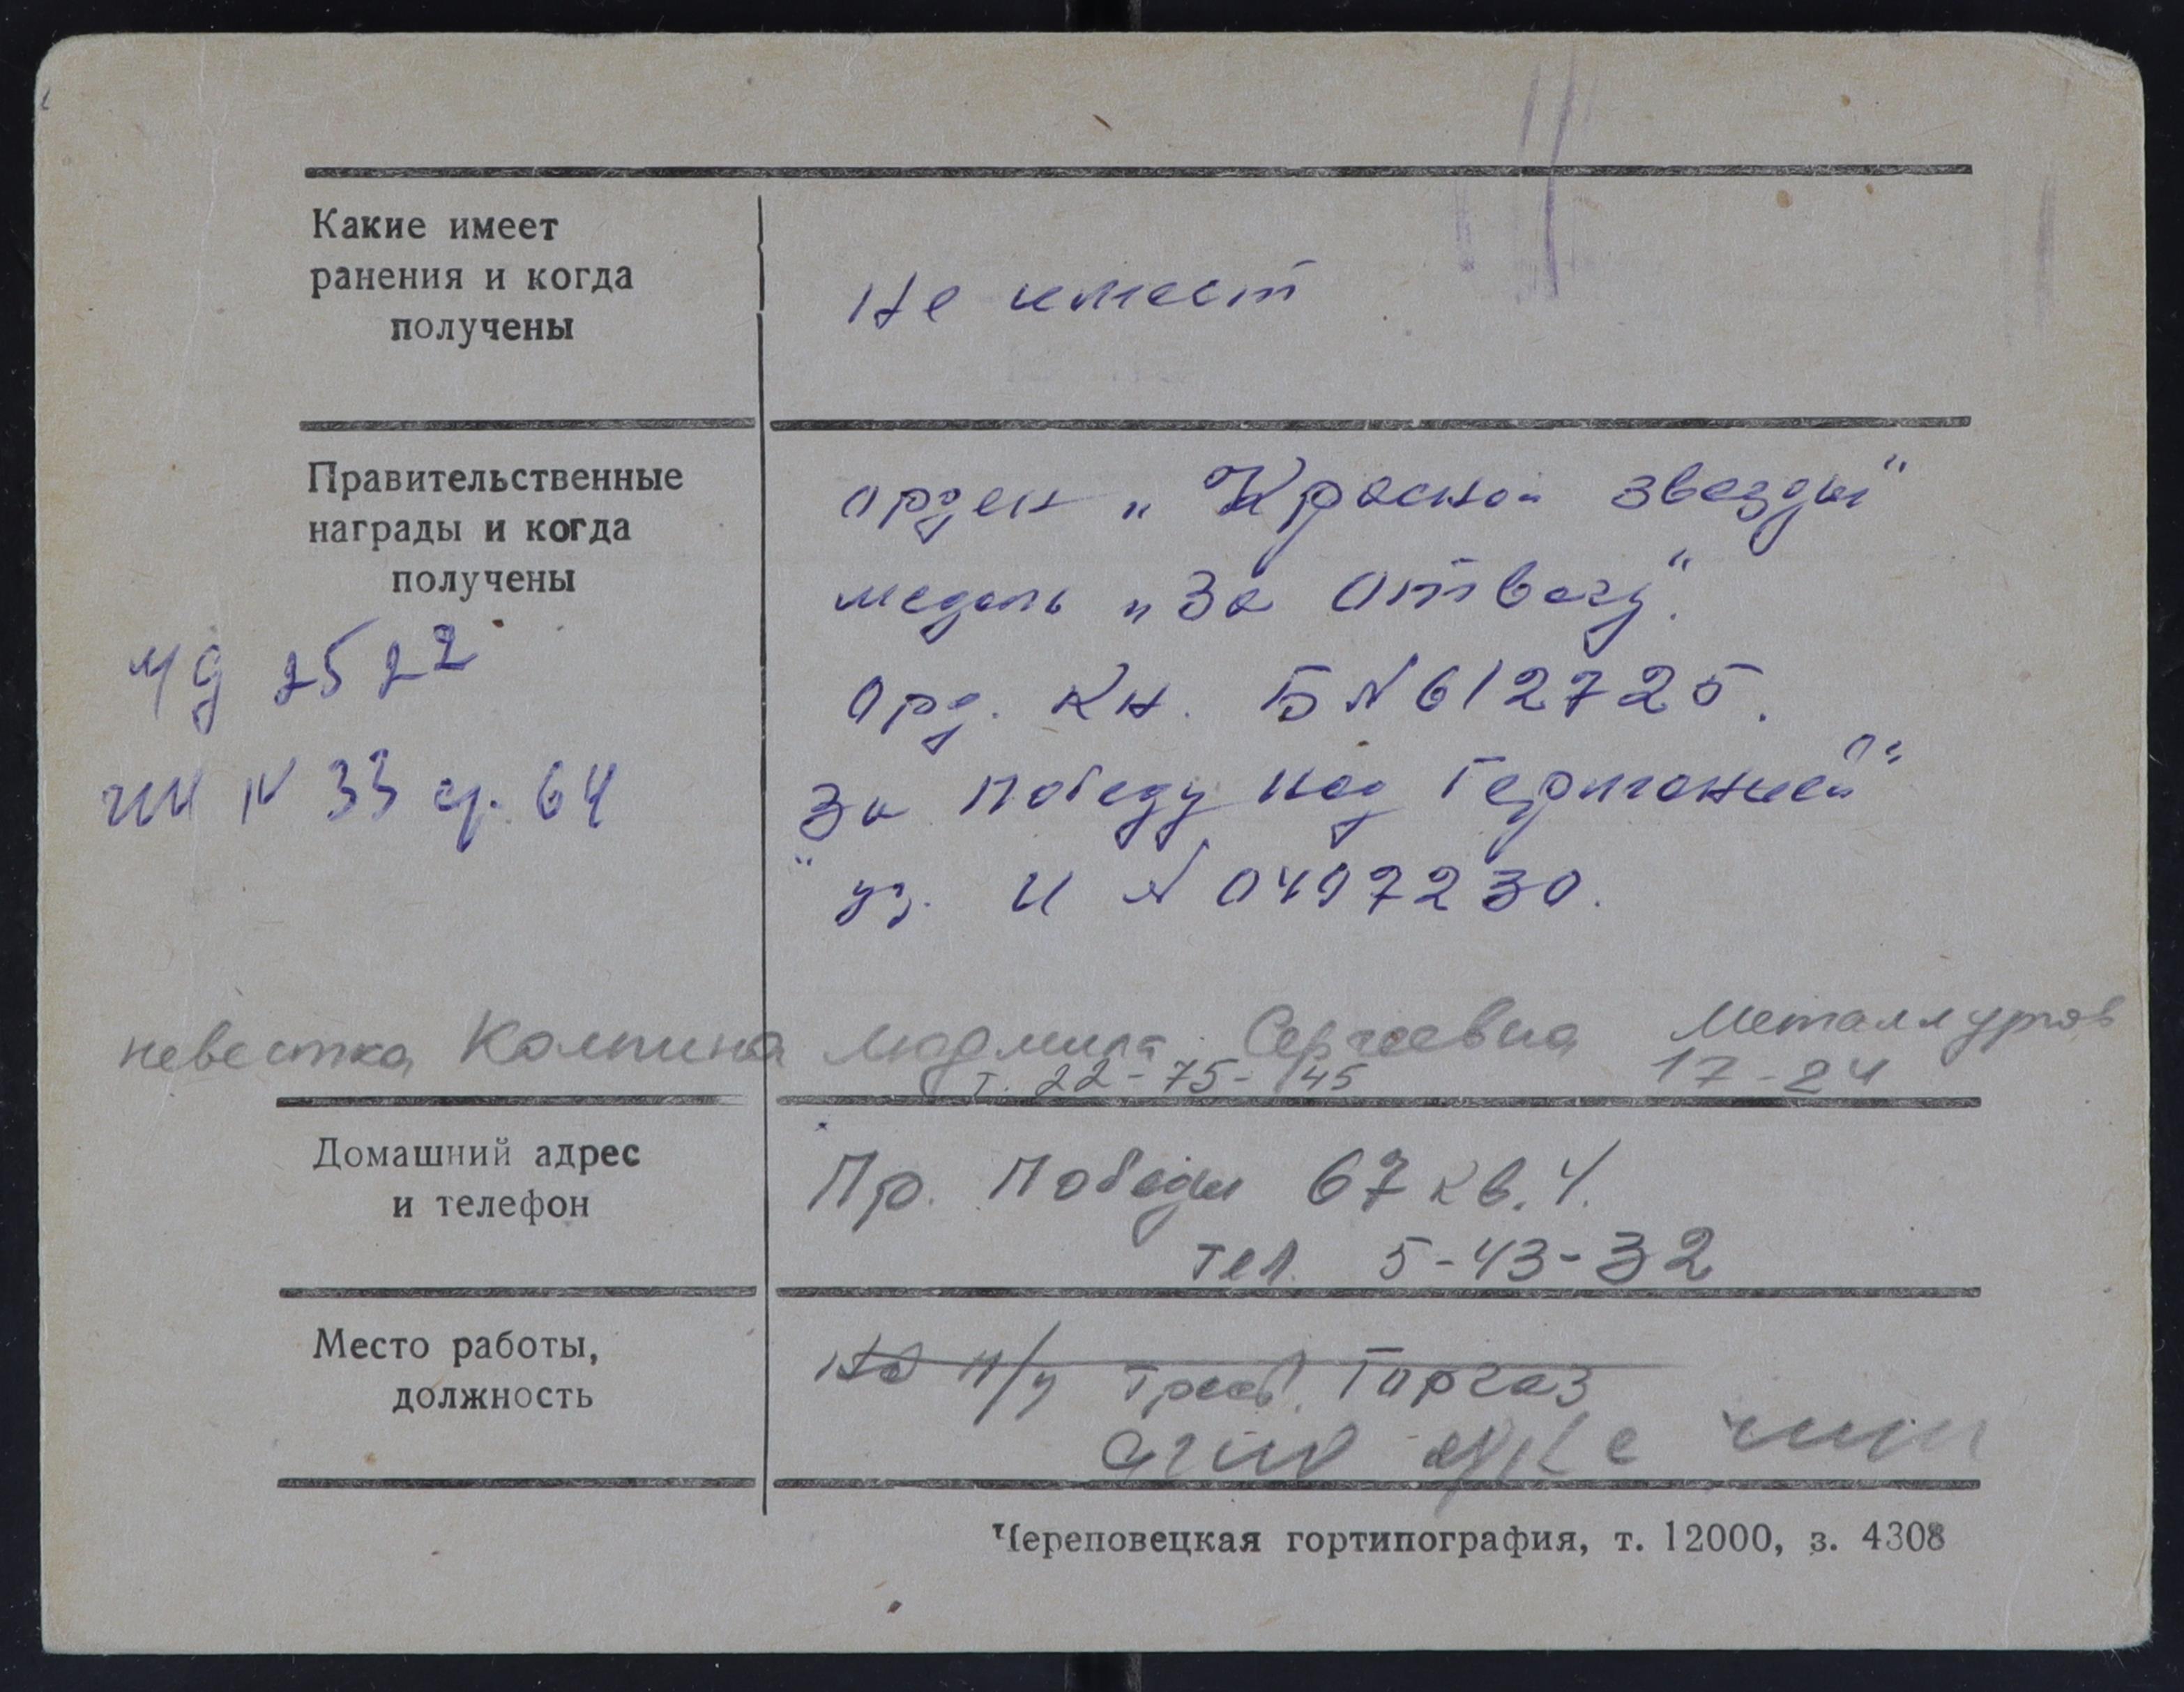 Какие имеет
ранения и когда
получены
Не имеет
Правительственные
награды и когда
получены
орден „Красной звезды“
медаль „За Отвагу“.
Орд. кн. Б № 612725.
За победу над Германией“
„уд. И № 0497230.
2522
№ 33 64
невестка Колпина Людмила Сергеевна Металлургов
т. 22-75-45 17-24
Домашний адрес
и телефон
Пр. Победы 67 кв. 4.
тел. 5-43-32
Место работы,
должность
Горгаз
Череповецкая гортипография, т. 12000, з. 4308